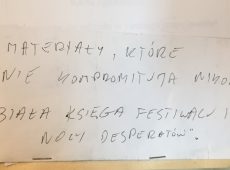 MATERIAŁY, KTÓRE
NIE KOMPROMITUJĄ
BIAŁA KSIĘGA FESTIWALU I
NOCY DESPERATÓW".